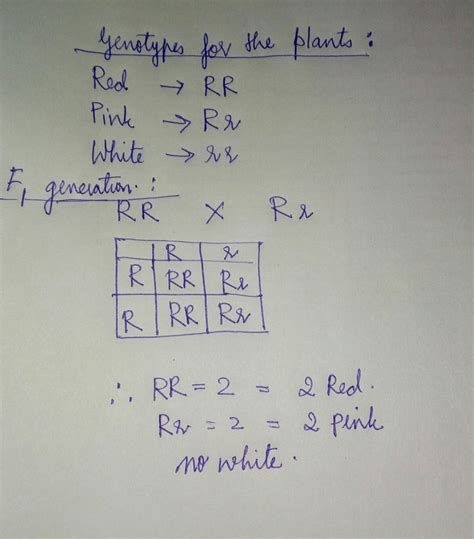 Genotypes for the plants :
Red → RR
Pink → Rr
White → rr
F1 generation. :
RR × Rr
R r
R RR Rr
R RR Rr
∴ RR = 2 = 2 Red.
Rr = 2 = 2 pink
no white.